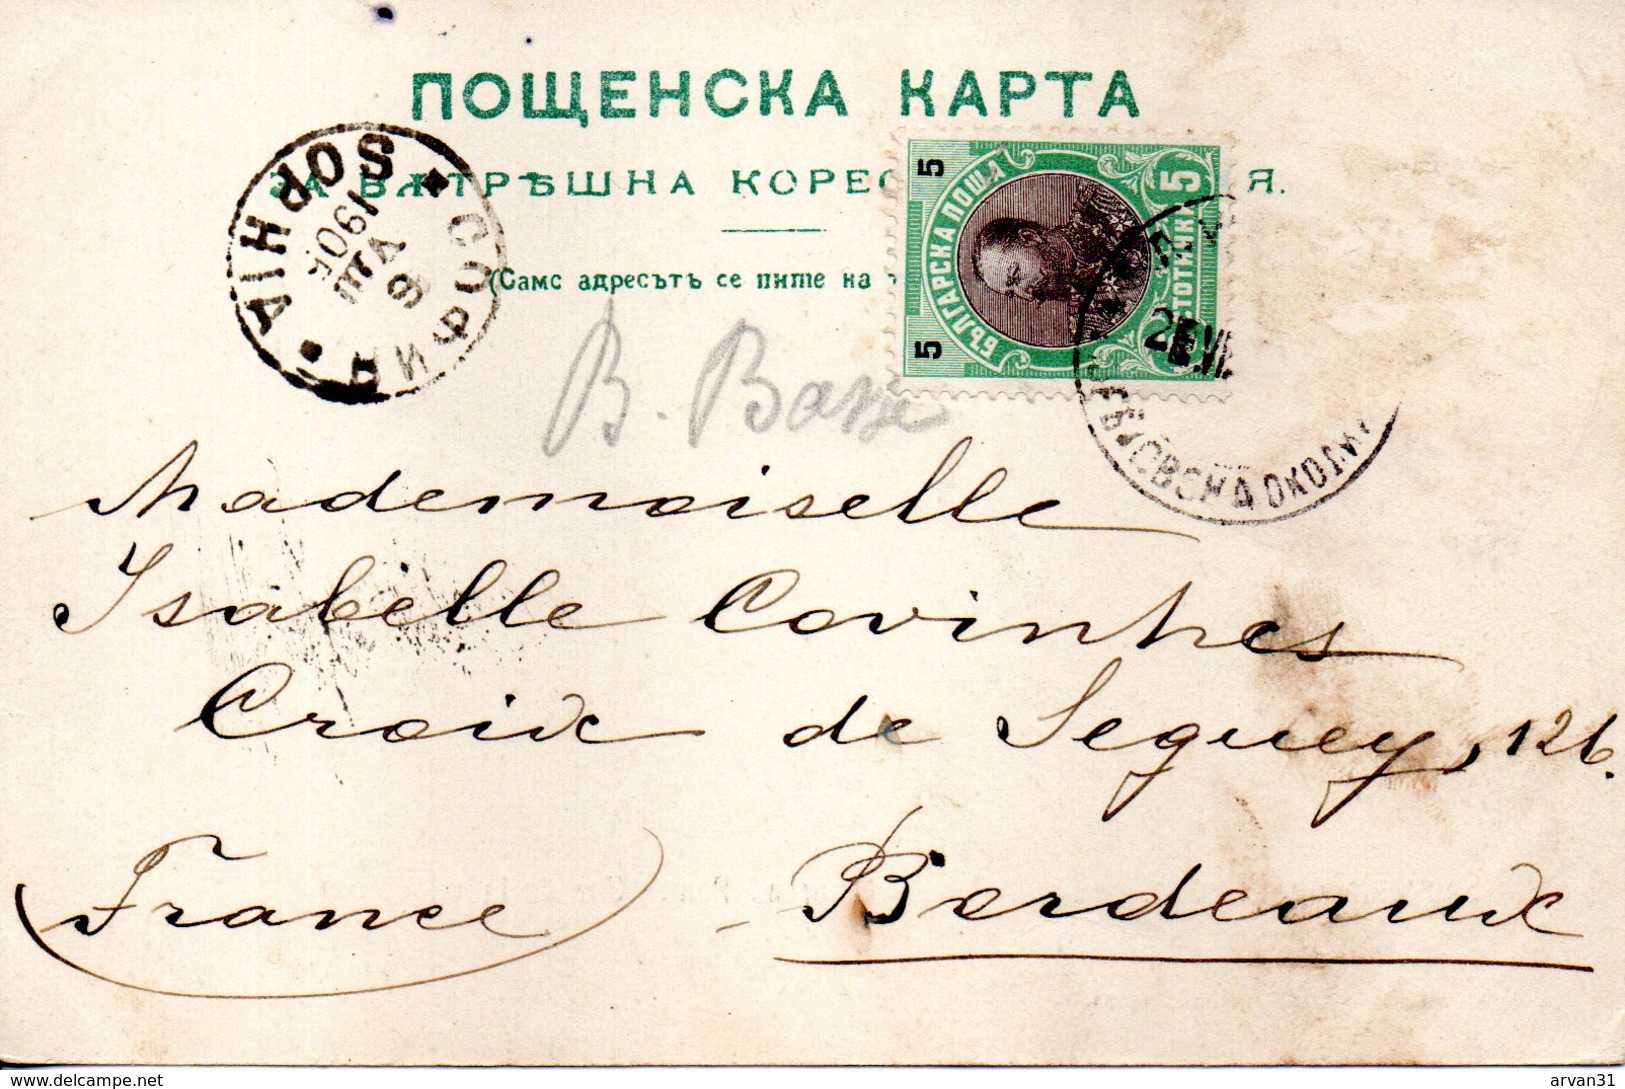 ПОЩЕНСКА КАРТА
ЗА ВѪТРѢШНА КОРЕС Я.
(Само адресътъ се пише на
SOPHIA
СОФИЯ
6 VIII 1905
5
5
БЪЛГАРСКА ПОЩА
5 СТОТИНКИ
ОКОЛИ
B.
Mademoiselle
Isabelle Covinhes
Croix de Seguey, 126.
(France) - Bordeaux
delcampe.net
arvan31